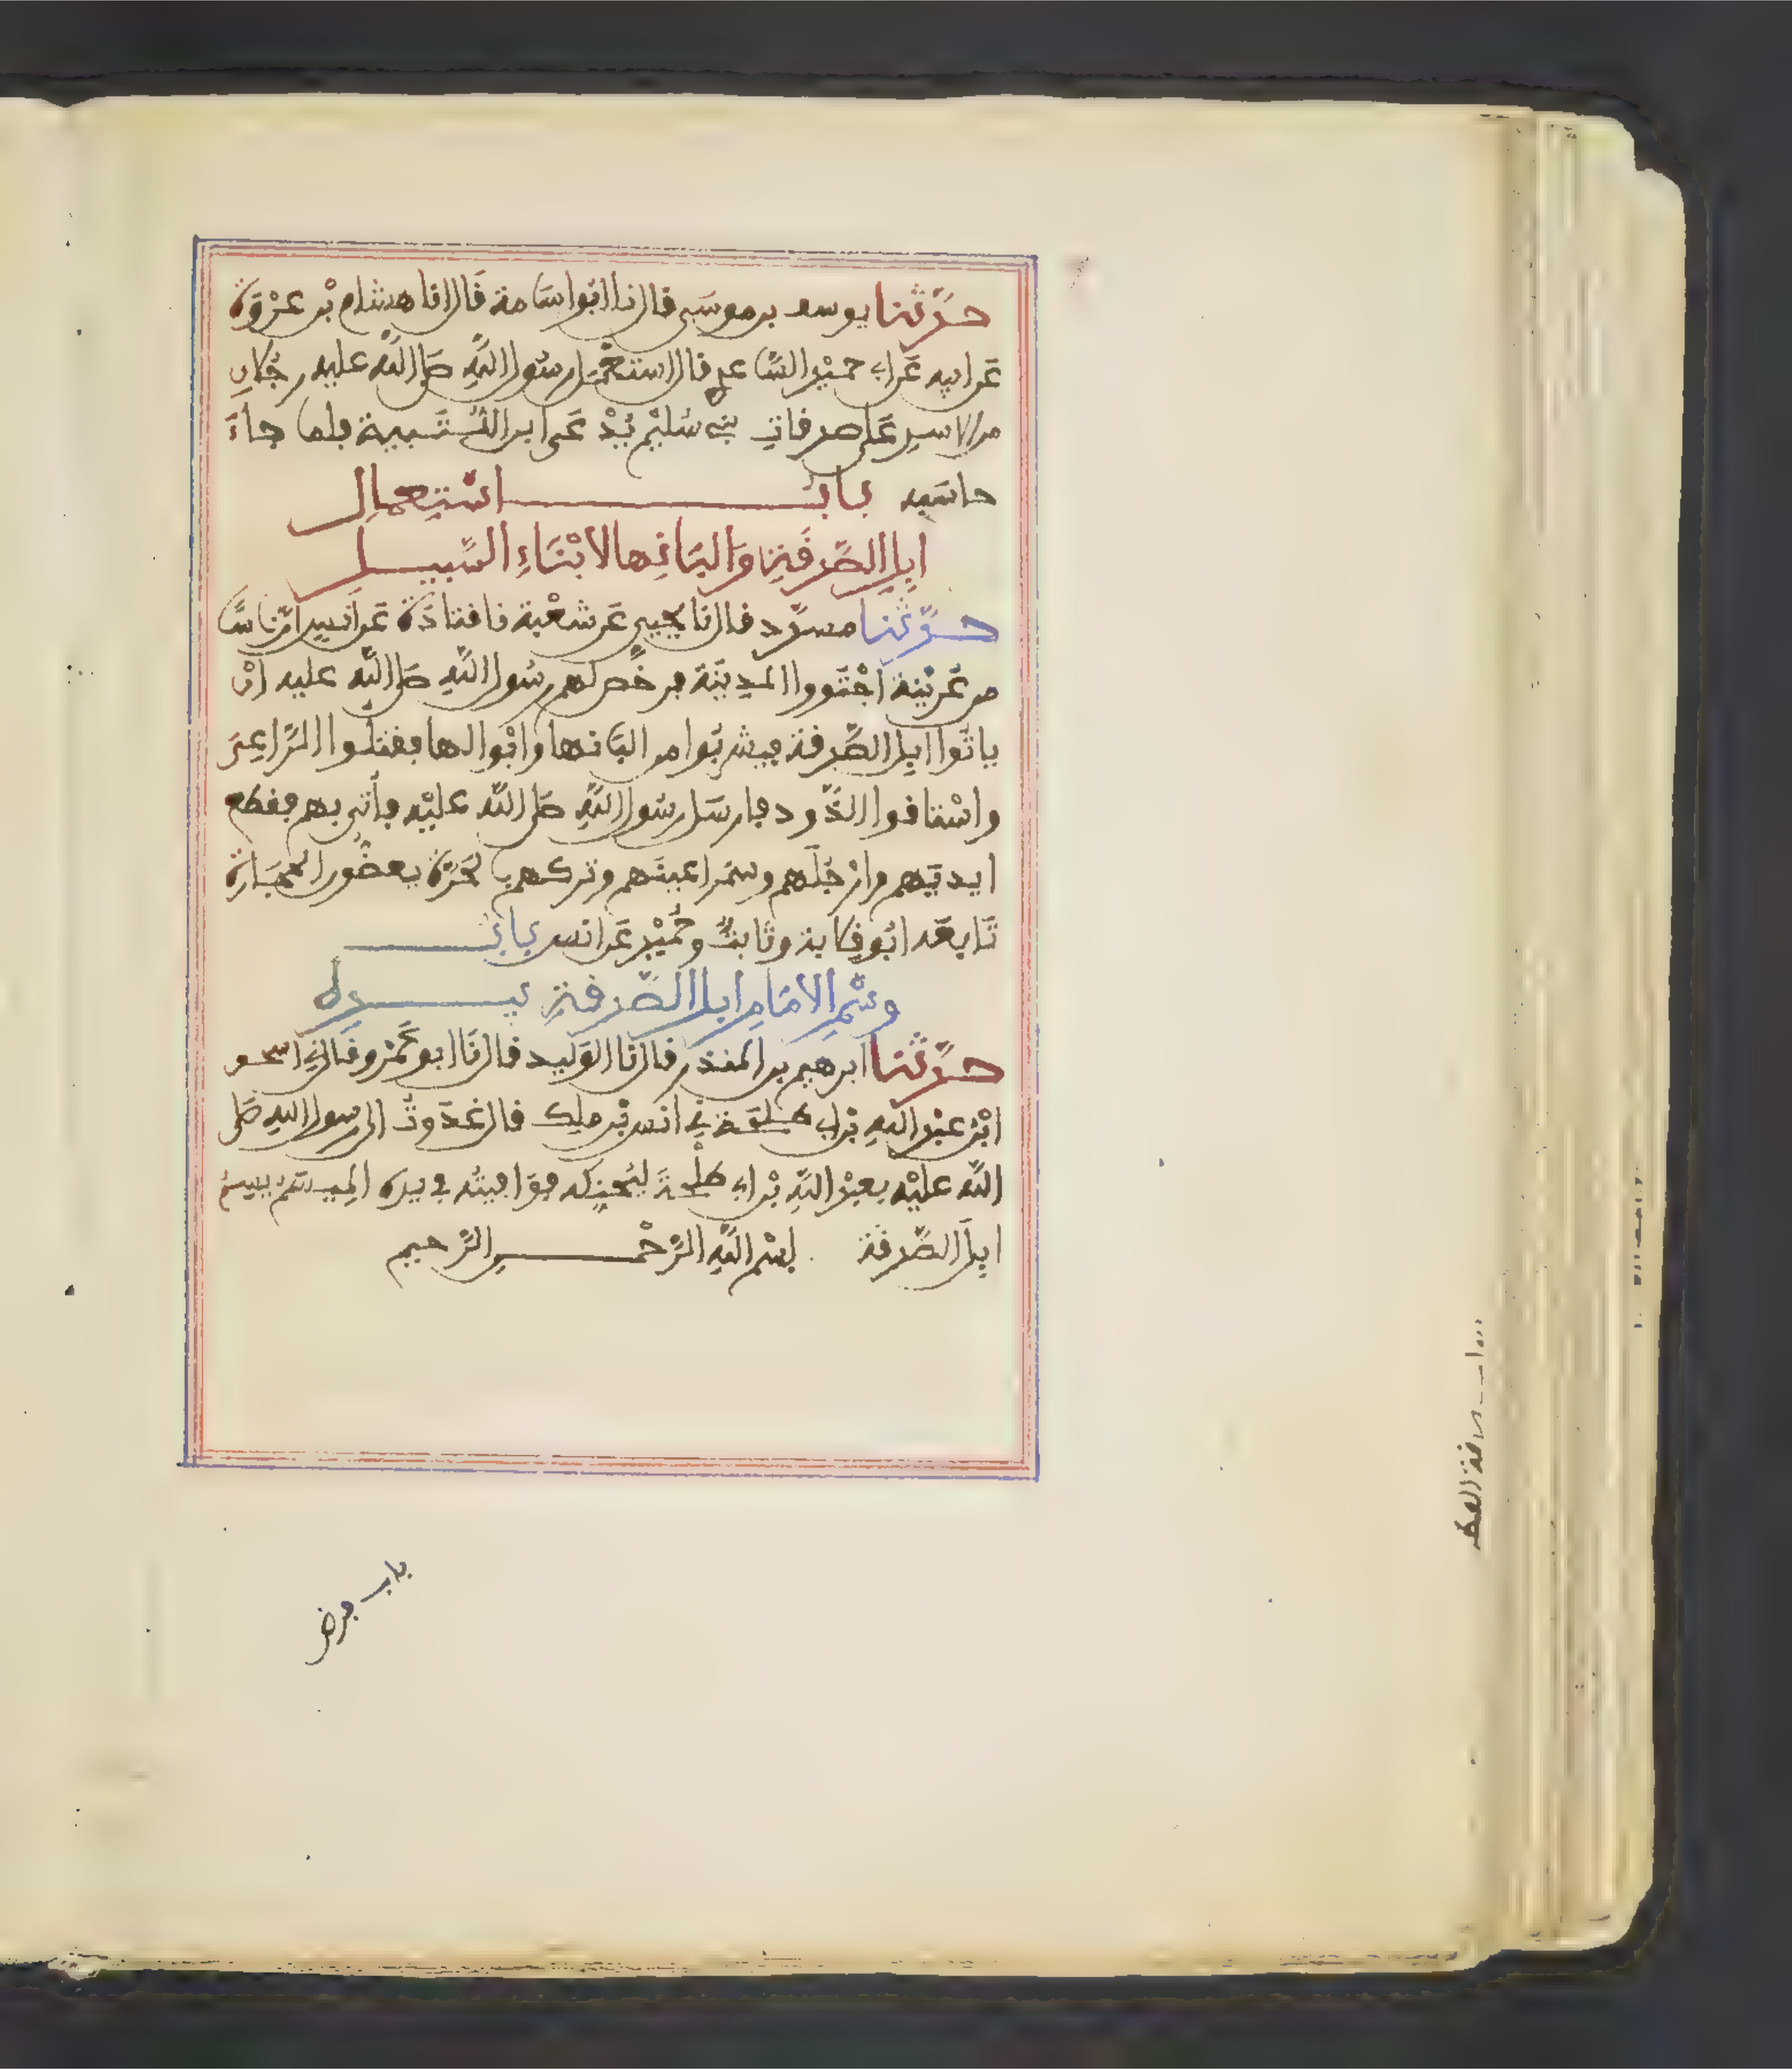 حدّثنا يوسف بن موسى قال نا ابو اسامة قال انا هشام بن عروة
عن ابيه عن ابي حميد الساعدي قال استعمل رسول الله صلى الله عليه رجلا
من الاسد على صدقات بني سليم يدعى ابن اللتبية فلما جاء
حاسبه باب استعمال
ابل الصدقة والبانها لابناء السبيل
حدّثنا مسدد قال نا يحيى عن شعبة نا قتادة عن انس ان ناسا
من عرينة اجتووا المدينة فرخص لهم رسول الله صلى الله عليه ان
ياتوا ابل الصدقة فيشربوا من البانها وابوالها فقتلوا الراعي
واستاقوا الذود فارسل رسول الله صلى الله عليه فاتي بهم فقطع
ايديهم وارجلهم وسمر اعينهم وتركهم بالحرة يعضون الحجارة
تابعه ابو قلابة وثابت وحميد عن انس باب
وسم الامام ابل الصدقة بيده
حدّثنا ابرهيم بن المنذر قال نا الوليد قال نا ابو عمرو قال ني اسحق
ابن عبد الله بن ابي طلحة ني انس بن ملك قال غدوت الى رسول الله صلى
الله عليه بعبد الله بن ابي طلحة ليحنكه فوافيته في يده الميسم يسم
ابل الصدقة بسم الله الرحمن الرحيم
باب فرض